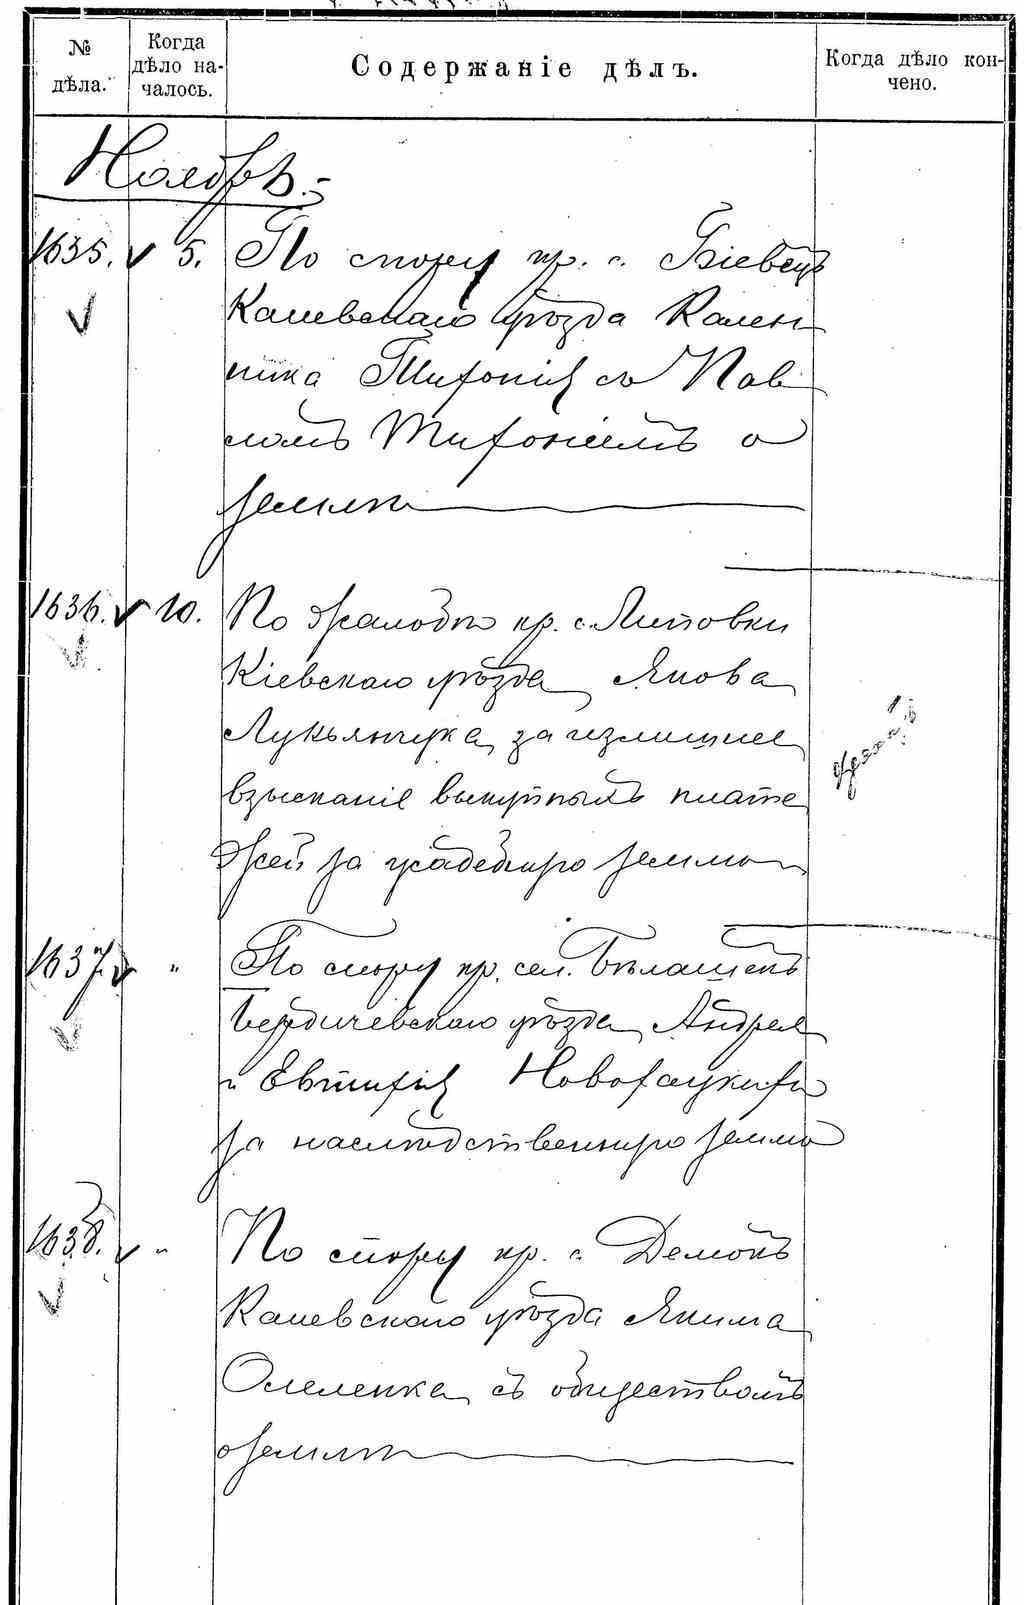 № дѣла.
Когда дѣло началось.
Содержаніе дѣлъ.
Когда дѣло кончено.
Ноябрь.
1635. 5. По спору кр. с. Бiевецъ
Каневскаго уѣзда Кален-
ника Тихонiя съ Пав-
ломъ Тихонiемъ о
землѣ
1636. 10. По жалобѣ кр. с. Липовки
Кіевскаго уѣзда Якова
Лукьянчука за излишнее
взысканіе выкупныхъ плате-
жей за усадебную землю
1637. " По спору кр. сел. Бѣлашекъ
Бердичевскаго уѣзда Андрея
и Евтихiя
за наслѣдственную землю
1638. " По спору кр. с.
Каневскаго уѣзда Якима
Олеленка съ обществомъ
о землѣ